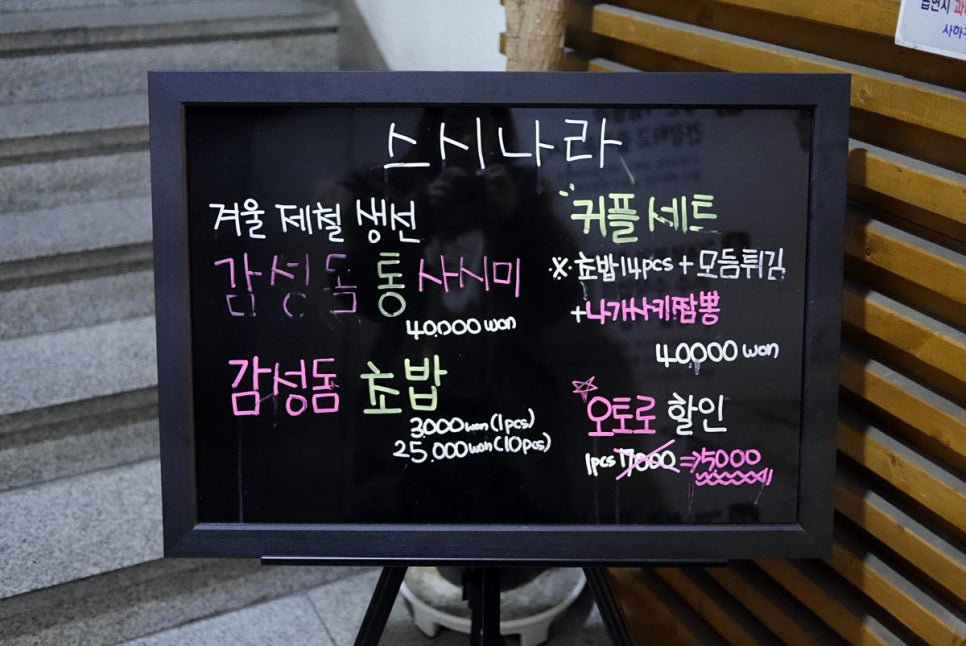 스시나라
겨울 제철 생선
감성돔 통 사시미
40.000 won
감성돔 초밥
3.000 won (1pcs)
25.000 won (10pcs)
커플 세트
※ 초밥 14pcs + 모듬튀김
+ 나가사키짬뽕
40000 won
☆오토로 할인
1pcs 17000 ⇒ 5000
과
사하